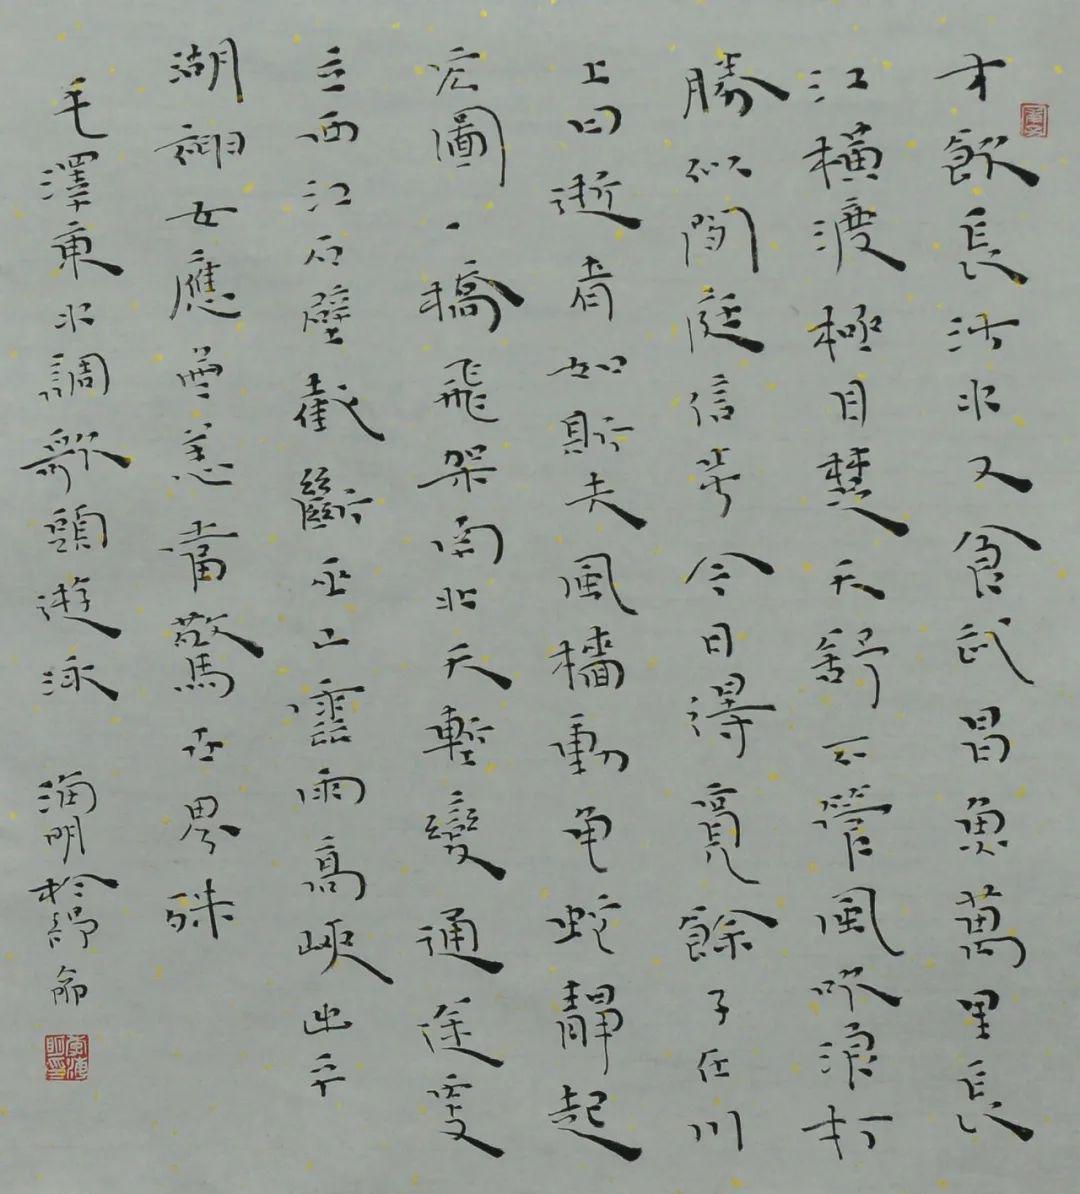 才飲長沙水又食武昌魚萬里長
江橫渡極目楚天舒不管風吹浪打
勝似閒庭信步今日得寬餘子在川
上曰逝者如斯夫風檣動龜蛇靜起
宏圖一橋飛架南北天塹變通途更
立西江石壁截斷巫山雲雨高峽出平
湖神女應無恙當驚世界殊
毛澤東水調歌頭遊泳 海明於